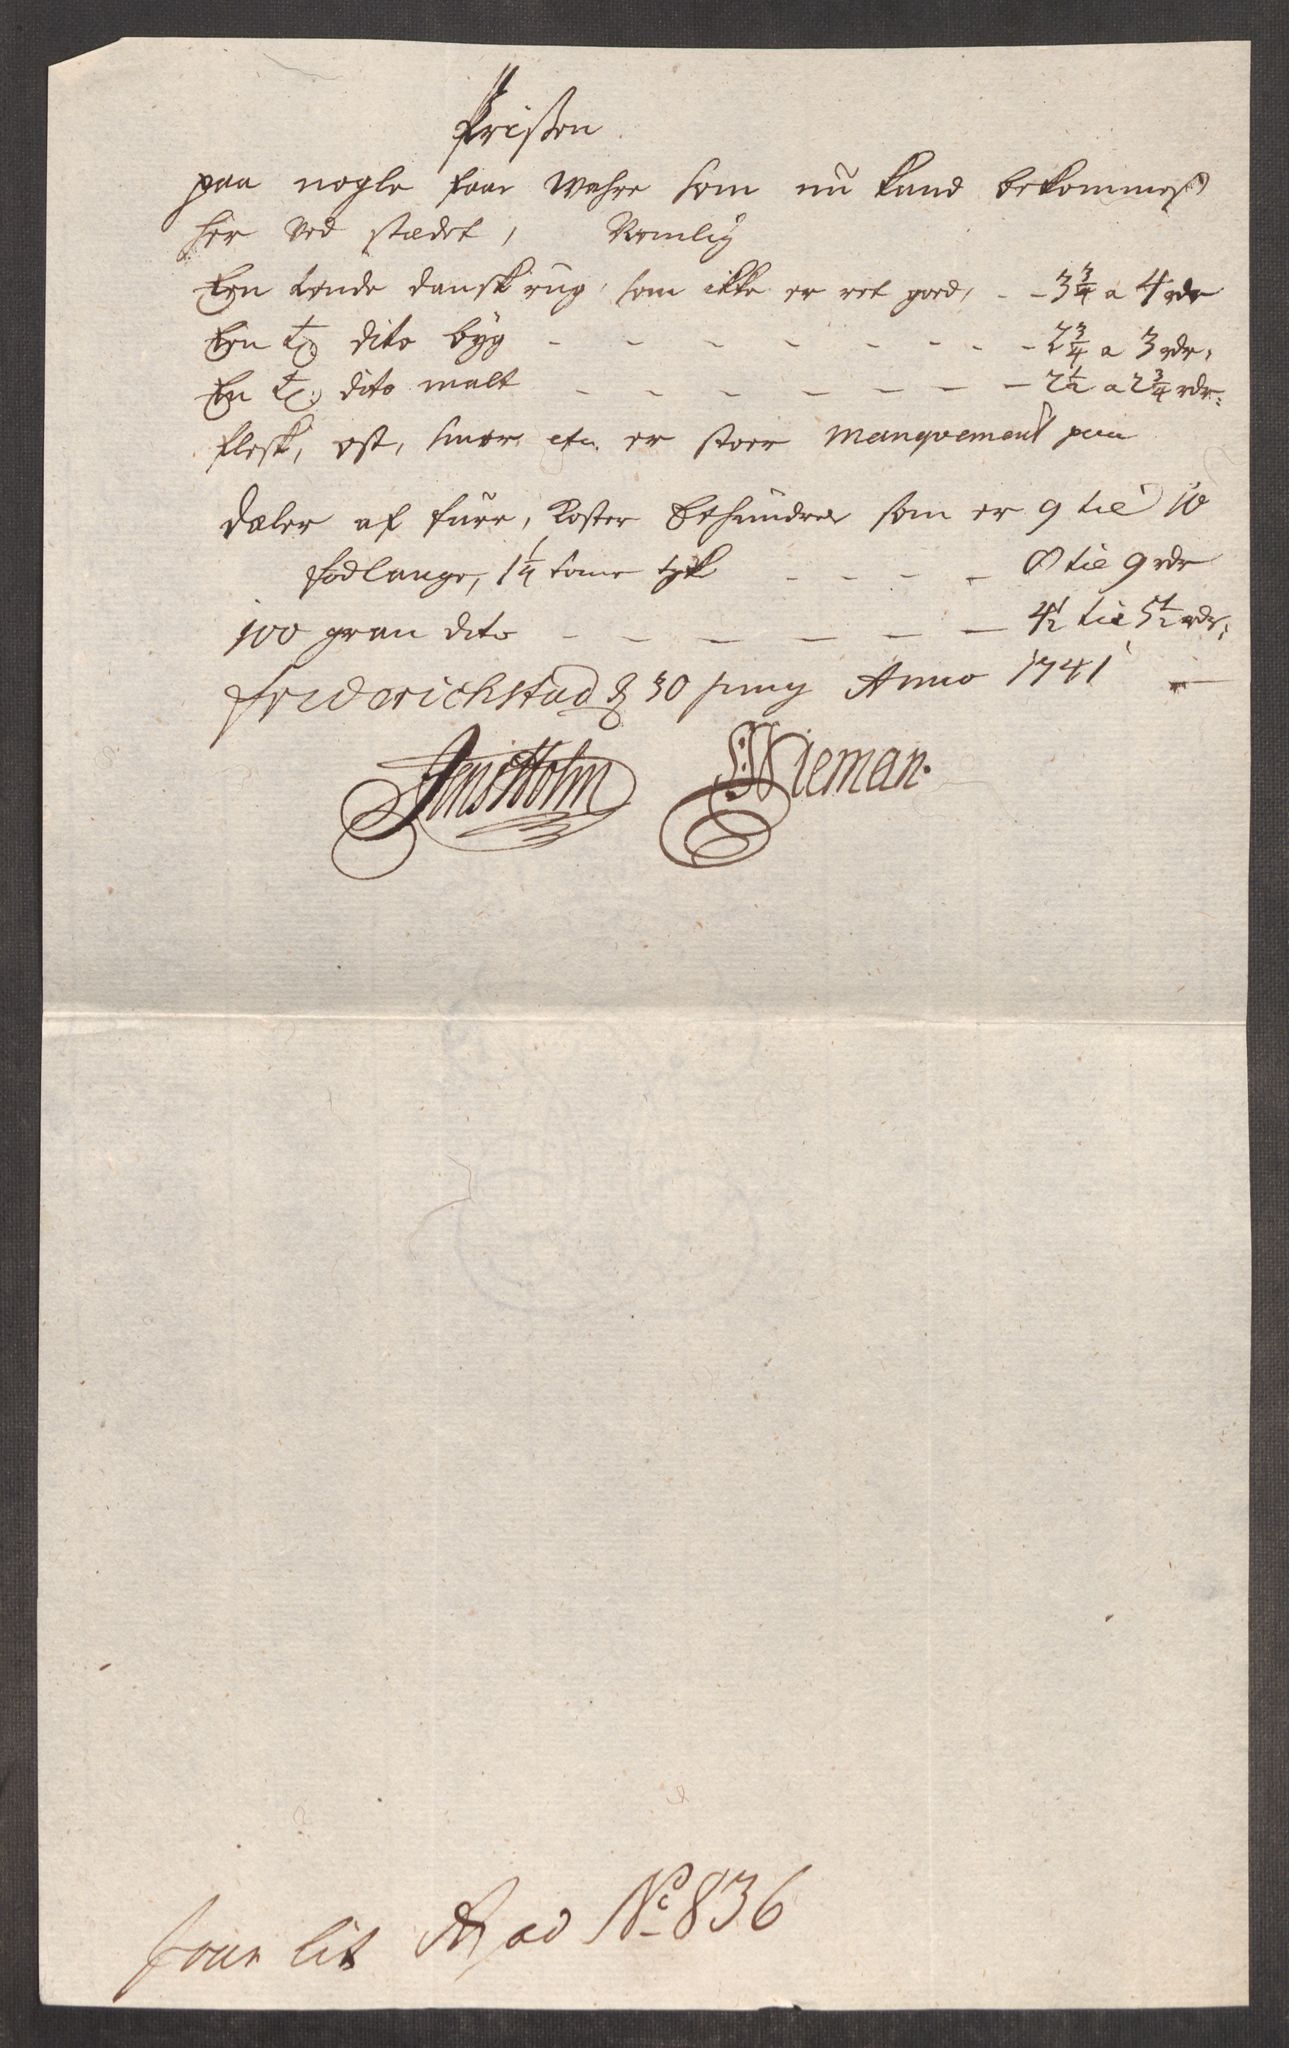 Prisen
paa nogle faae Wahre som nu kand bekommes
her ved stædet, Nemlig
Een tønde dansk rug, som ikke er ret goed, - - 3 3/4 a 4 rdr
Een tø dito byg - - - - - - - - 2 3/4 a 3 rdr:
En tø: dito malt - - - - - - - 2 1/2 a 2 3/4 rdr:
flesk, ost, smør etc. er stoer manqvement paa
Dæler af furre, koster et hundrede som er 9 til 10
fod lange, 1 1/4 tome tyk - - - - 8 til 9 rdr
100 gran dito - - - - - - - 4 1/2 til 5 1/2 rdr:
friderichstad d 30 Juny Anno 1741
Jens Holm Wieman.
Jour lit ad No 836